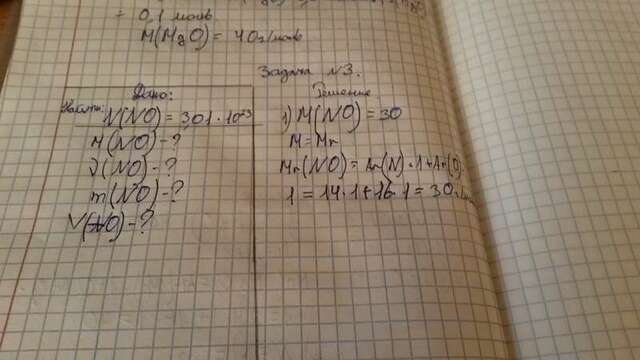 0,1 моль
M(MgO) = 40 г/моль
Задача №3.
Дано:
N(NO) = 301 · 10²³
Найти:
M(NO) - ?
ν(NO) - ?
m(NO) - ?
V(NO) - ?
Решение
1) M(NO) = 30
M = Mr
Mr(NO) = Ar(N) · 1 + Ar(O) ·
1 = 14 · 1 + 16 · 1 = 30